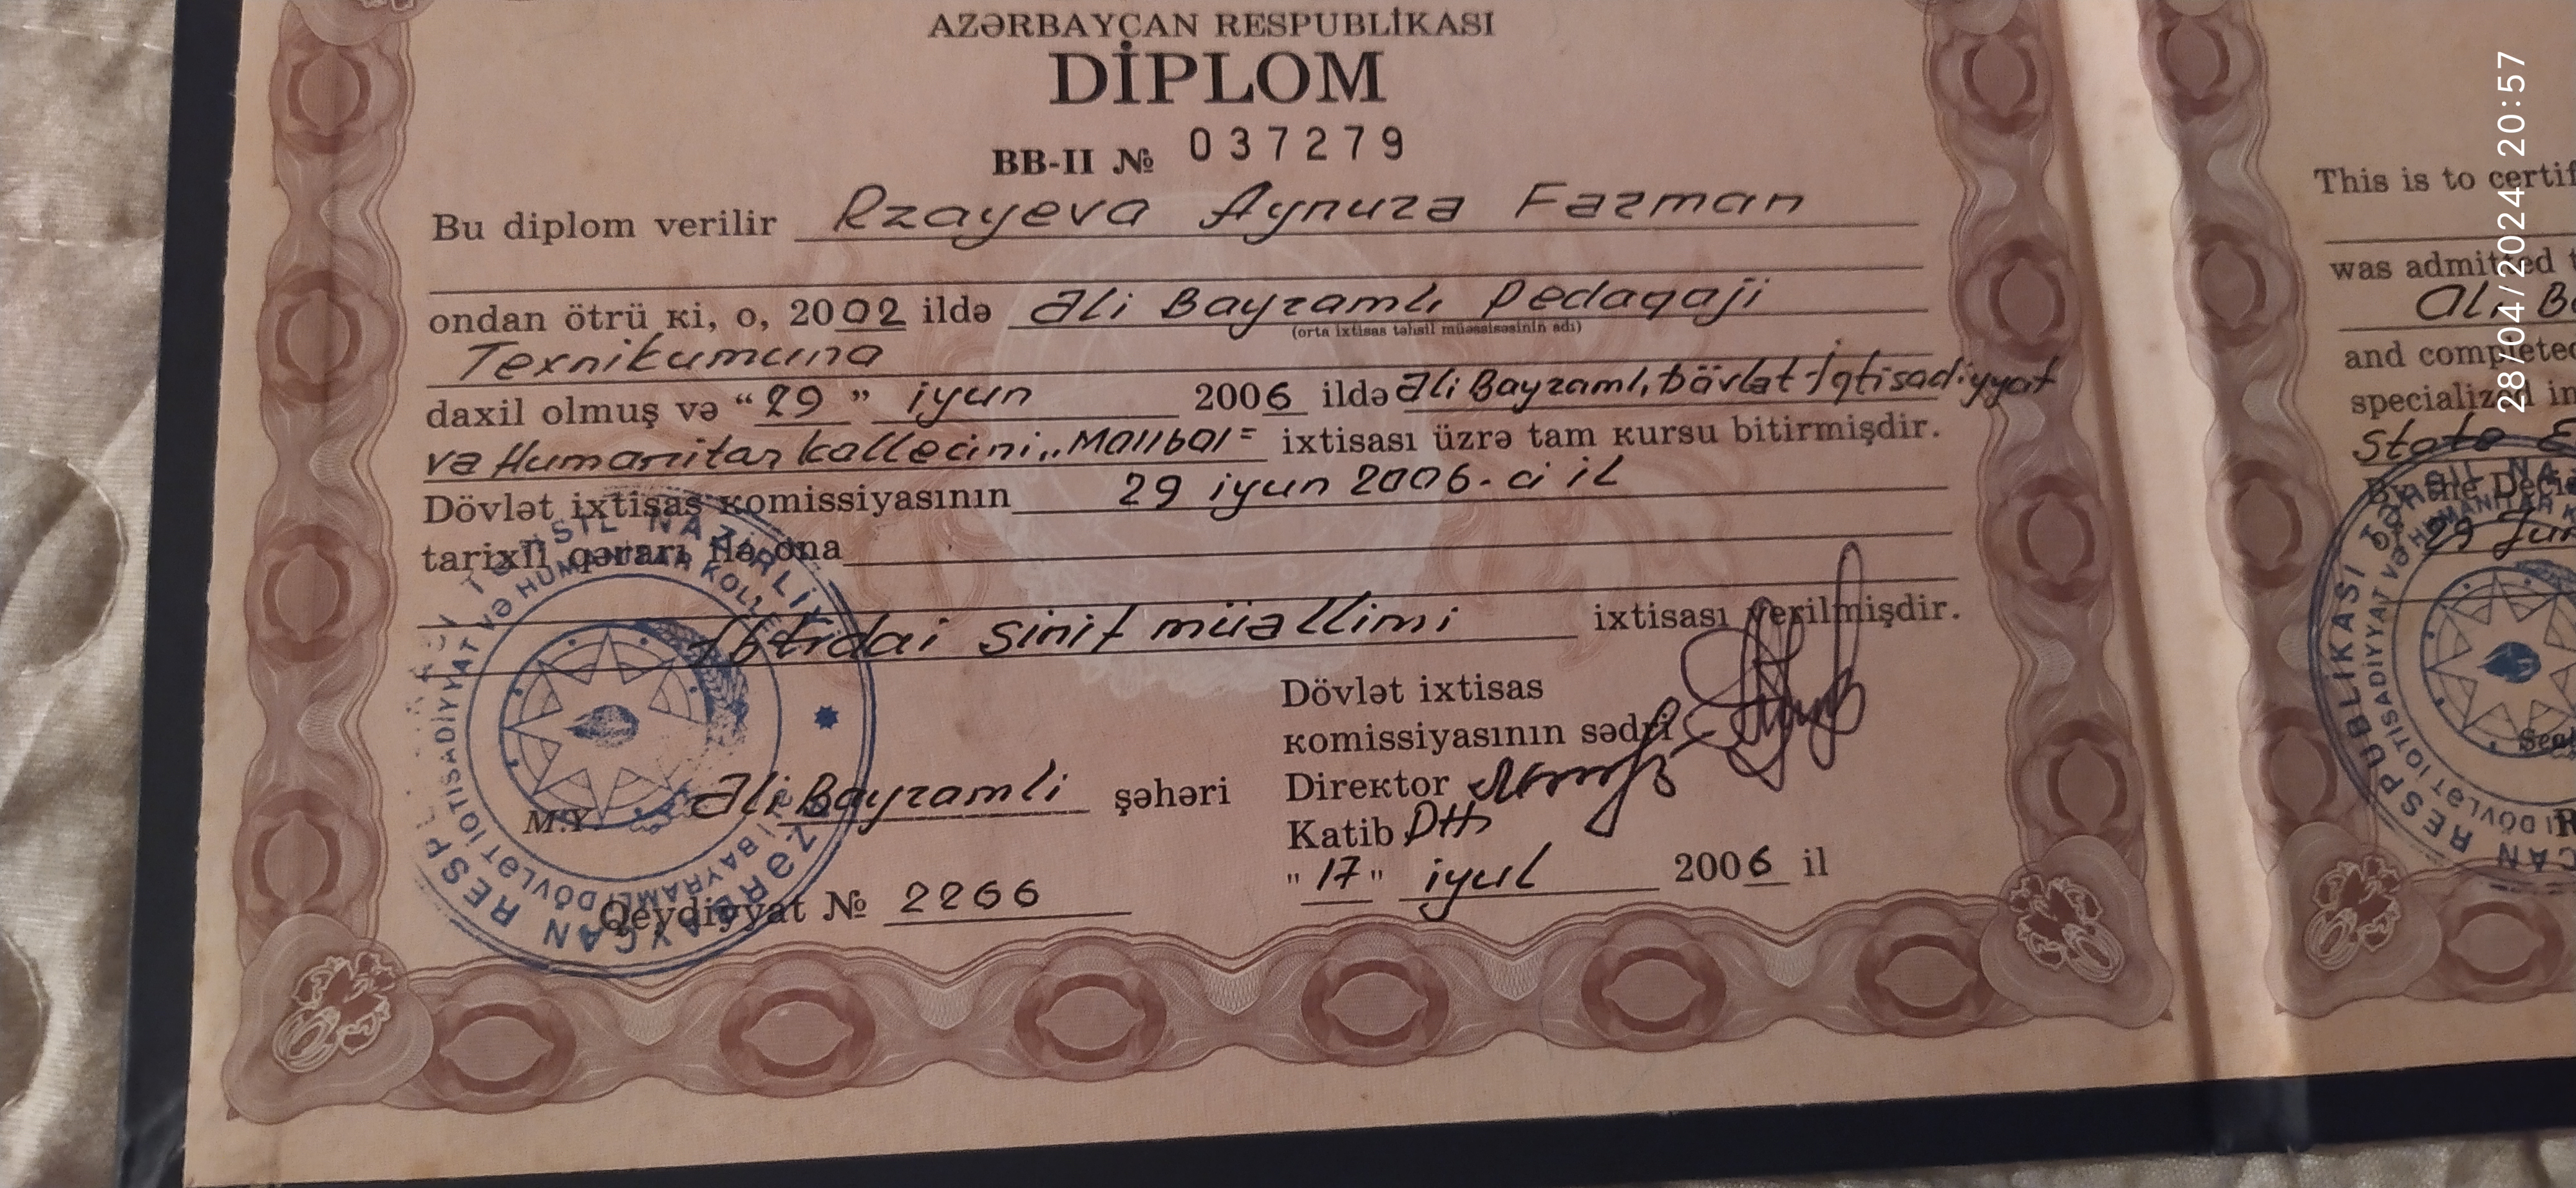 AZƏRBAYCAN RESPUBLİKASI
DİPLOM
BB-II № 037279
Bu diplom verilir Rzayeva Aynurə Fərman
ondan ötrü ki, o, 2002 ildə Əli Bayramlı Pedaqoji
(orta ixtisas təhsil müəssisəsinin adı)
Texnikumuna
daxil olmuş və "29" iyun 2006 ildə Əli Bayramlı Dövlət İqtisadiyyat
və Humanitar kollecini ixtisası üzrə tam kursu bitirmişdir.
Dövlət ixtisas komissiyasının 29 iyun 2006-ci il
tarixli qərarı ilə ona
İbtidai sinif müəllimi ixtisası verilmişdir.
Dövlət ixtisas
komissiyasının sədri
Direktor
Katib
M.Y. Əli Bayramli şəhəri
"17" iyul 2006 il
Qeydiyyat № 2266
This is to certif
was admitted t
Ali B
and completed
specialized in
State E
By the Decis
29 Jun
Seal
28/04/2024 20:57